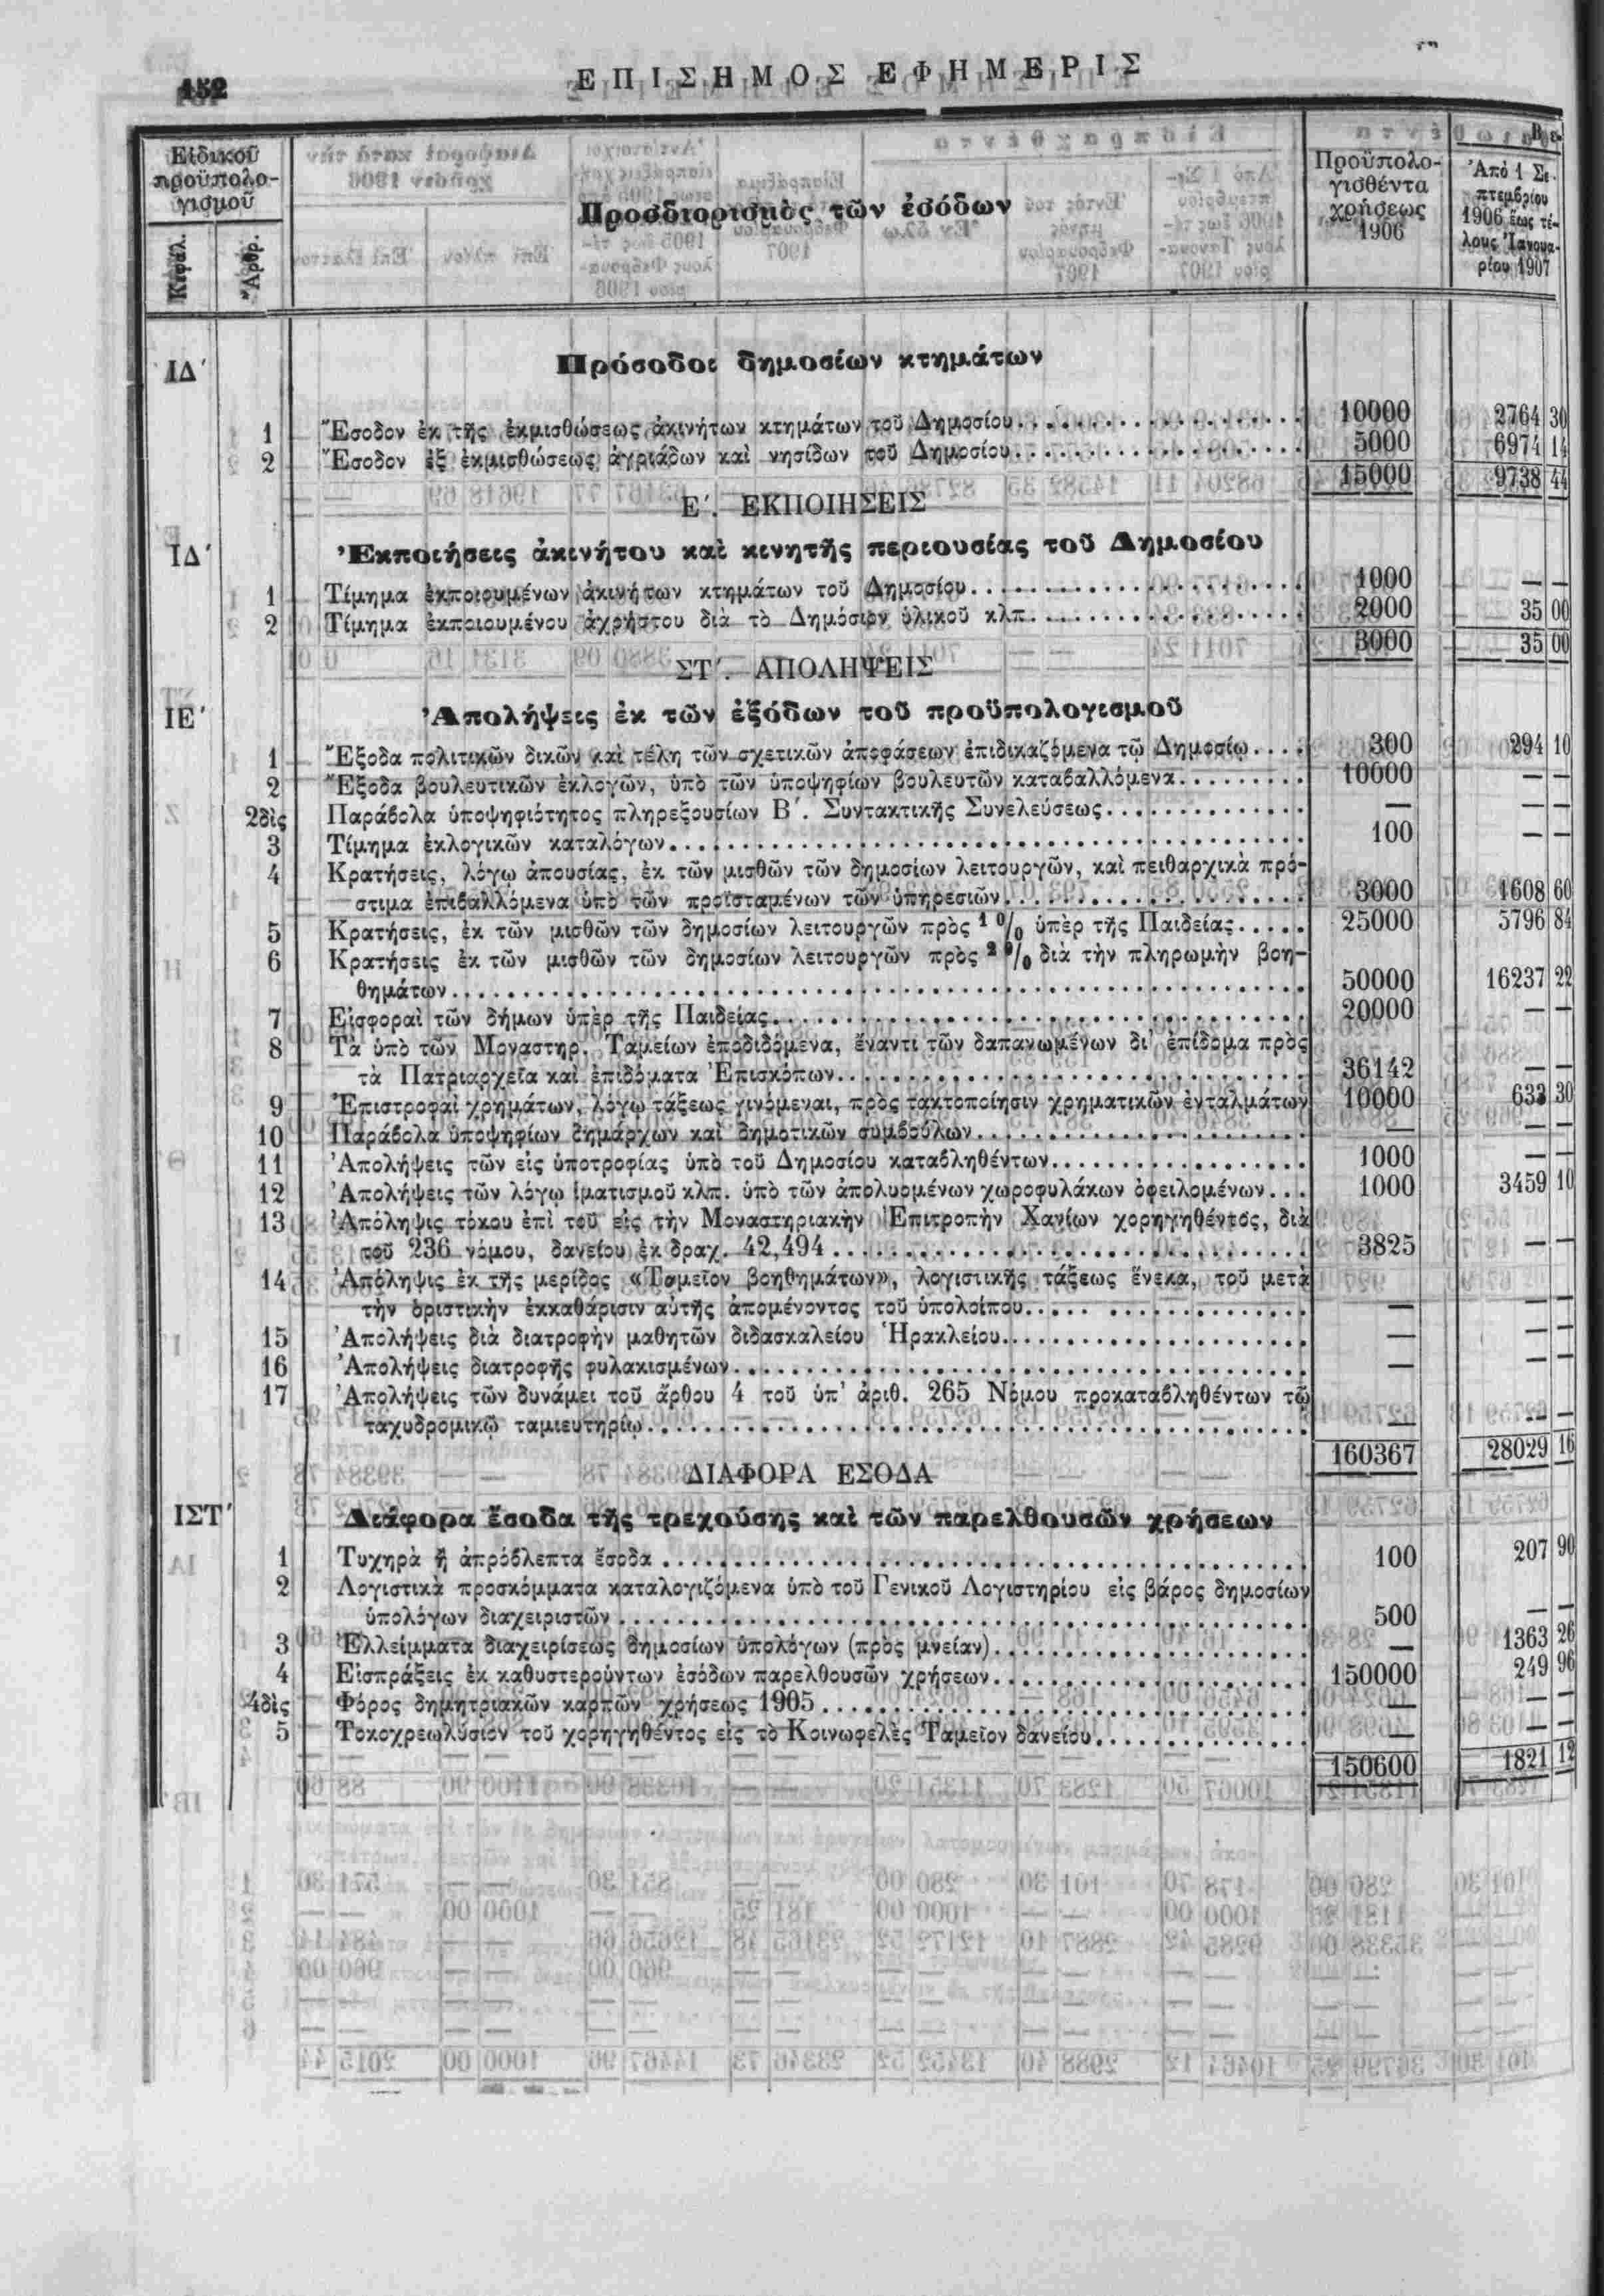 152
ΕΠΙΣΗΜΟΣ ΕΦΗΜΕΡΙΣ
Εἰδικοῦ προϋπολο-
γισμοῦ
Κεφάλ.
Ἄρθρ.
Προσδιορισμὸς τῶν ἐσόδων
Προϋπολο-
γισθέντα
χρήσεως
1906
Βε-
Ἀπὸ 1 Σε-
πτεμβρίου
1906 ἕως τέ-
λους Ἰανουα-
ρίου 1907
ΙΔ′ Πρόσοδοι δημοσίων κτημάτων
1 Ἔσοδον ἐκ τῆς ἐκμισθώσεως ἀκινήτων κτημάτων τοῦ Δημοσίου 10000 2764 30
2 Ἔσοδον ἐξ ἐκμισθώσεως ἀγριάδων καὶ νησίδων τοῦ Δημοσίου 5000 6974 14
15000 9738 44
Ε′. ΕΚΠΟΙΗΣΕΙΣ
ΙΔ′ Ἐκποιήσεις ἀκινήτου καὶ κινητῆς περιουσίας τοῦ Δημοσίου
1 Τίμημα ἐκποιουμένων ἀκινήτων κτημάτων τοῦ Δημοσίου 1000 — —
2 Τίμημα ἐκποιουμένου ἀχρήστου διὰ τὸ Δημόσιον ὑλικοῦ κλπ. 2000 35 00
3000 35 00
ΣΤ′. ΑΠΟΛΗΨΕΙΣ
ΙΕ′ Ἀπολήψεις ἐκ τῶν ἐξόδων τοῦ προϋπολογισμοῦ
1 Ἔξοδα πολιτικῶν δικῶν καὶ τέλη τῶν σχετικῶν ἀποφάσεων ἐπιδικαζόμενα τῷ Δημοσίῳ 300 294 10
2 Ἔξοδα βουλευτικῶν ἐκλογῶν, ὑπὸ τῶν ὑποψηφίων βουλευτῶν καταβαλλόμενα 10000 — —
2δὶς Παράβολα ὑποψηφιότητος πληρεξουσίων Β′. Συντακτικῆς Συνελεύσεως — — —
3 Τίμημα ἐκλογικῶν καταλόγων 100 — —
4 Κρατήσεις, λόγῳ ἀπουσίας, ἐκ τῶν μισθῶν τῶν δημοσίων λειτουργῶν, καὶ πειθαρχικὰ πρό-
στιμα ἐπιβαλλόμενα ὑπὸ τῶν προϊσταμένων τῶν ὑπηρεσιῶν 3000 1608 60
5 Κρατήσεις, ἐκ τῶν μισθῶν τῶν δημοσίων λειτουργῶν πρὸς 1 0/0 ὑπὲρ τῆς Παιδείας 25000 5796 84
6 Κρατήσεις ἐκ τῶν μισθῶν τῶν δημοσίων λειτουργῶν πρὸς 2 0/0 διὰ τὴν πληρωμὴν βοη-
θημάτων 50000 16237 22
7 Εἰσφοραὶ τῶν δήμων ὑπὲρ τῆς Παιδείας 20000 — —
8 Τὰ ὑπὸ τῶν Μοναστηρ. Ταμείων ἀποδιδόμενα, ἔναντι τῶν δαπανωμένων δι' ἐπίδομα πρὸς
τὰ Πατριαρχεῖα καὶ ἐπιδόματα Ἐπισκόπων 36142 — —
9 Ἐπιστροφαὶ χρημάτων, λόγῳ τάξεως γινόμεναι, πρὸς τακτοποίησιν χρηματικῶν ἐνταλμάτων 10000 633 30
10 Παράβολα ὑποψηφίων δημάρχων καὶ δημοτικῶν συμβούλων — — —
11 Ἀπολήψεις τῶν εἰς ὑποτροφίας ὑπὸ τοῦ Δημοσίου καταβληθέντων 1000 — —
12 Ἀπολήψεις τῶν λόγῳ ἱματισμοῦ κλπ. ὑπὸ τῶν ἀπολυομένων χωροφυλάκων ὀφειλομένων 1000 3459 10
13 Ἀπόληψις τόκου ἐπὶ τοῦ εἰς τὴν Μοναστηριακὴν Ἐπιτροπὴν Χανίων χορηγηθέντος, διὰ
τοῦ 236 νόμου, δανείου ἐκ δραχ. 42,494 3825 — —
14 Ἀπόληψις ἐκ τῆς μερίδος «Ταμεῖον βοηθημάτων», λογιστικῆς τάξεως ἕνεκα, τοῦ μετὰ
τὴν ὁριστικὴν ἐκκαθάρισιν αὐτῆς ἀπομένοντος τοῦ ὑπολοίπου — — —
15 Ἀπολήψεις διὰ διατροφὴν μαθητῶν διδασκαλείου Ἡρακλείου — — —
16 Ἀπολήψεις διατροφῆς φυλακισμένων — — —
17 Ἀπολήψεις τῶν δυνάμει τοῦ ἄρθου 4 τοῦ ὑπ' ἀριθ. 265 Νόμου προκαταβληθέντων τῷ
ταχυδρομικῷ ταμιευτηρίῳ — — —
160367 28029 16
ΔΙΑΦΟΡΑ ΕΣΟΔΑ
ΙΣΤ′ Διάφορα ἔσοδα τῆς τρεχούσης καὶ τῶν παρελθουσῶν χρήσεων
1 Τυχηρὰ ἢ ἀπρόβλεπτα ἔσοδα 100 207 90
2 Λογιστικὰ προσκόμματα καταλογιζόμενα ὑπὸ τοῦ Γενικοῦ Λογιστηρίου εἰς βάρος δημοσίων
ὑπολόγων διαχειριστῶν 500 — —
3 Ἐλλείμματα διαχειρίσεως δημοσίων ὑπολόγων (πρὸς μνείαν) — 1363 26
4 Εἰσπράξεις ἐκ καθυστερούντων ἐσόδων παρελθουσῶν χρήσεων 150000 249 96
4δὶς Φόρος δημητριακῶν καρπῶν χρήσεως 1905 — — —
5 Τοκοχρεωλύσιον τοῦ χορηγηθέντος εἰς τὸ Κοινωφελὲς Ταμεῖον δανείου — — —
150600 1821 12